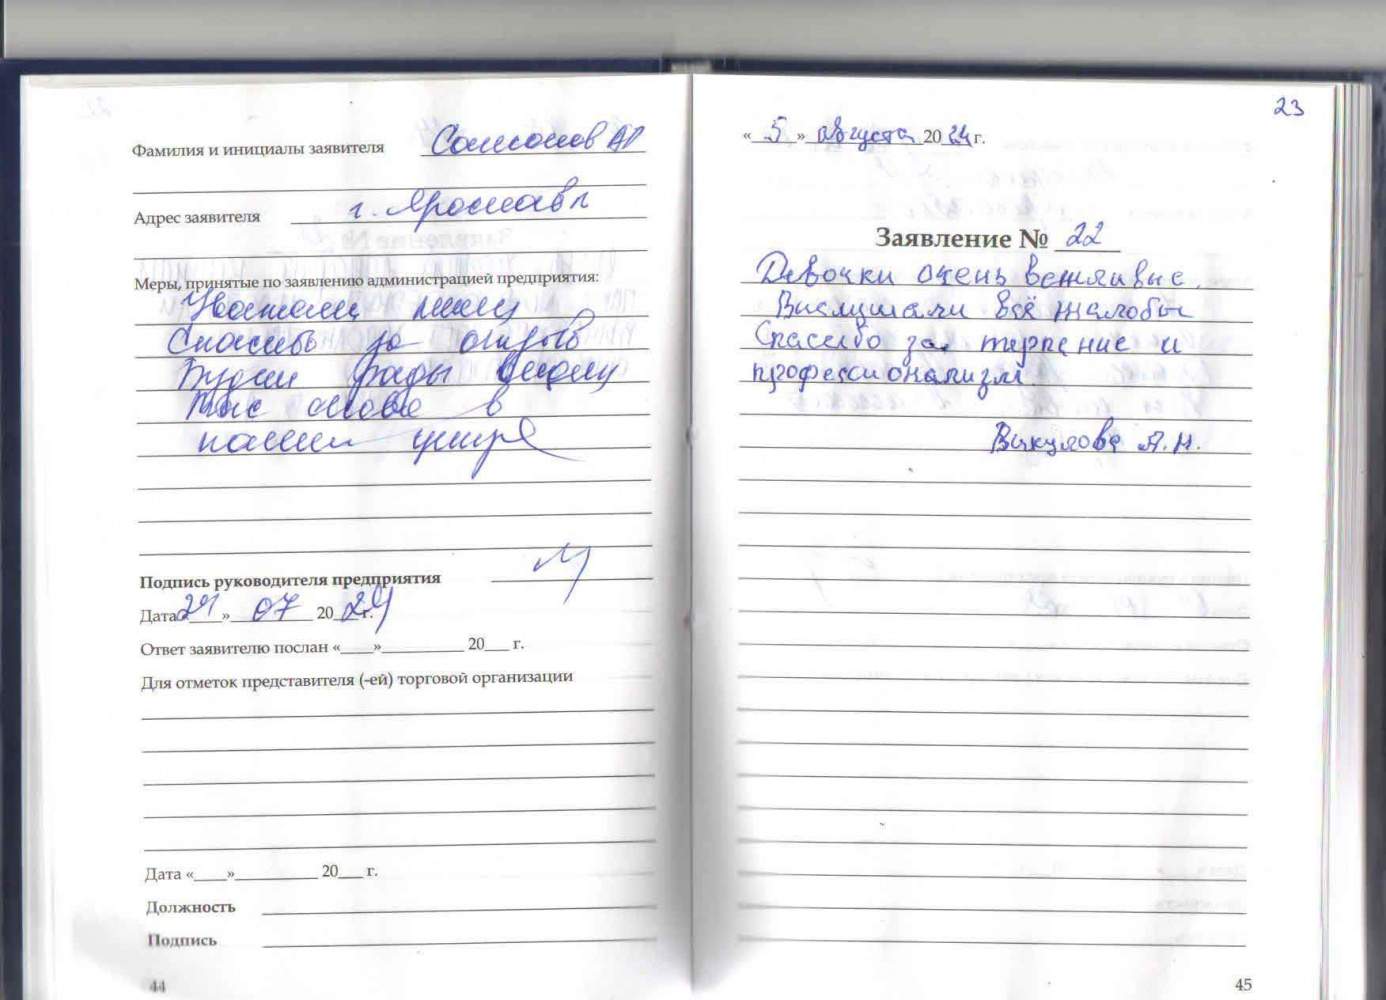 Фамилия и инициалы заявителя Самсонов АП
Адрес заявителя г. Ярославл
Меры, принятые по заявлению администрацией предприятия:
Спасибо за отзыв
Будем рады видеть
Вас снова в
нашем центре
Подпись руководителя предприятия
Дата «24» 07 2024 г.
Ответ заявителю послан «___»_________ 20___ г.
Для отметок представителя (-ей) торговой организации
Дата «____»_________ 20___ г.
Должность
Подпись
44
23
«5» августа 2024 г.
Заявление № 22
Девочки очень вежливые.
Выслушали всё жалобы
Спасибо за терпение и
профессионализм.
Викулова А.Н.
45